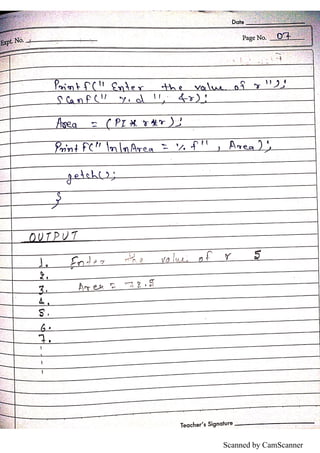 Date
Expt. No.
Page No. 07
Printf(" Enter the value of r ");
Scanf(" %d ", &r);
Area = (PI * r*r);
Printf(" \n\nArea = %f ", Area);
getch();
}
OUTPUT
1. Enter the value of r 5
2.
3. Area = 78.5
4.
5.
6.
7.
Teacher's Signature
Scanned by CamScanner